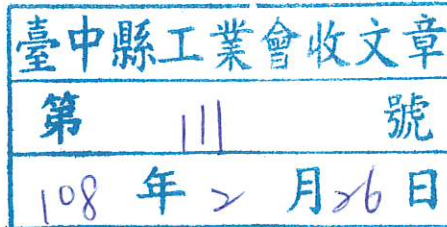 臺中縣工業會收文章
第 111 號
108 年 2 月 26 日